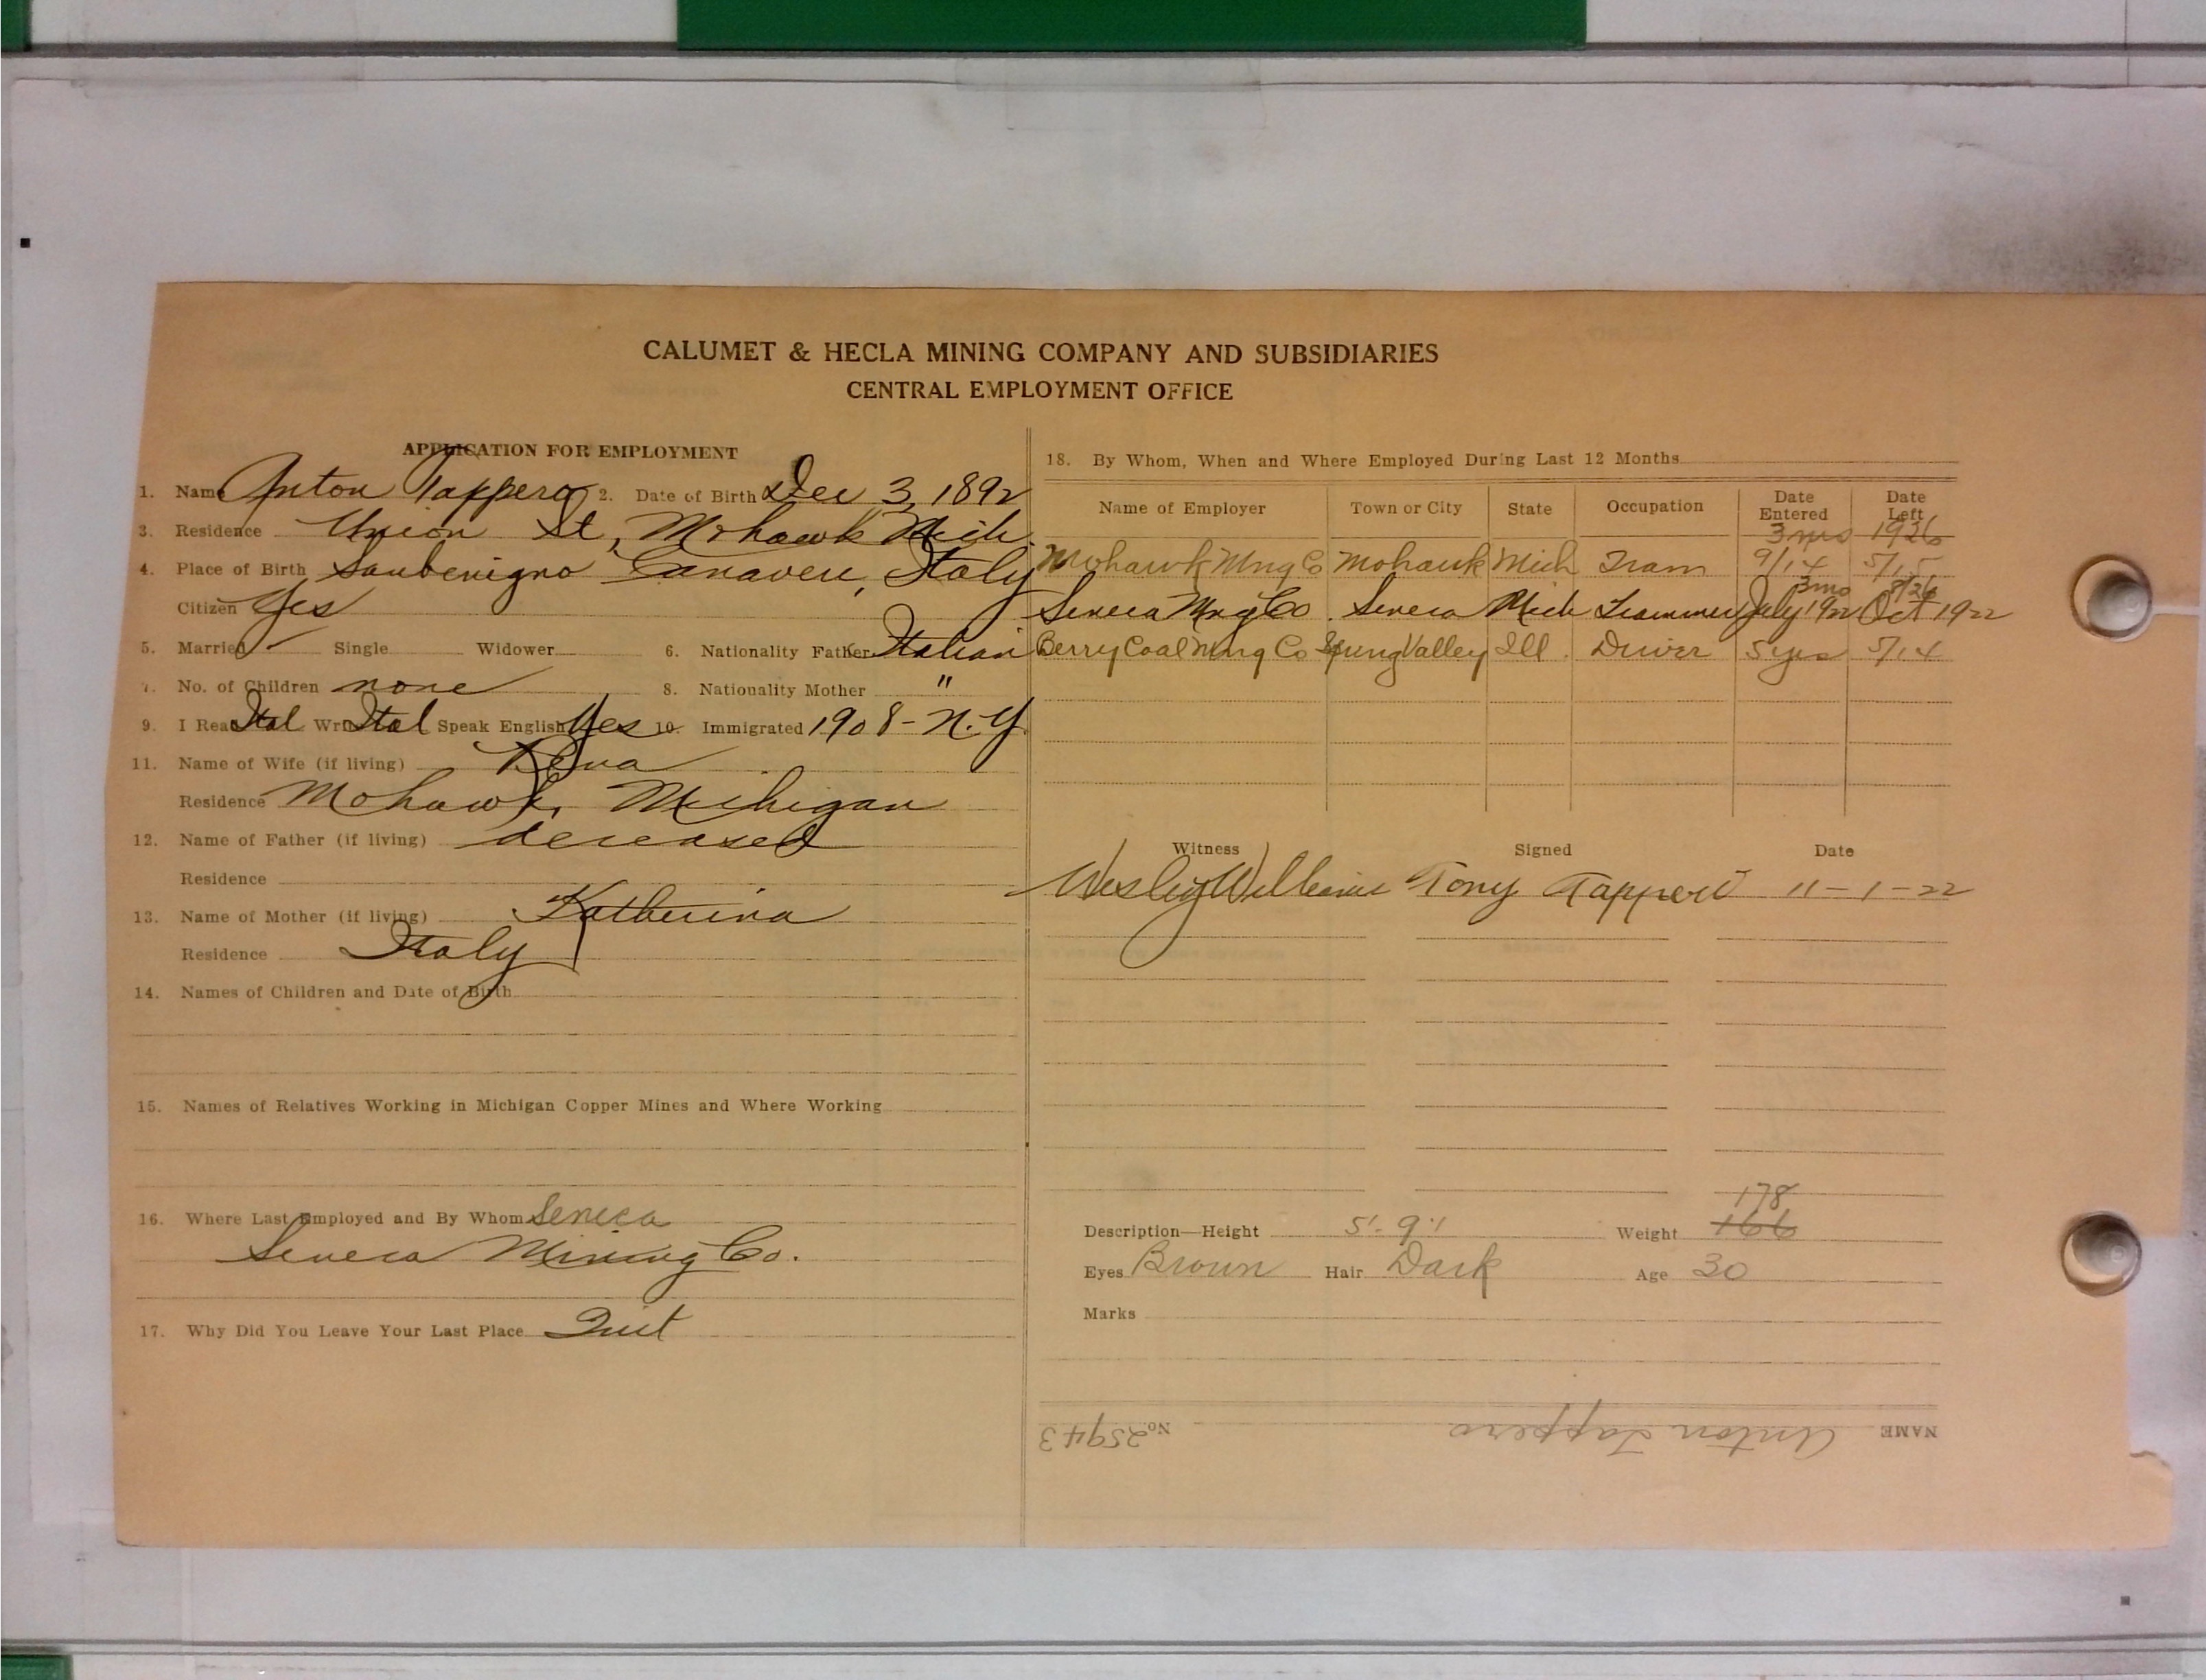 CALUMET & HECLA MINING COMPANY AND SUBSIDIARIES
CENTRAL EMPLOYMENT OFFICE
APPLICATION FOR EMPLOYMENT
1. Name Anton Tappero 2. Date of Birth Dec 3, 1892
3. Residence Union St, Mohawk Mich.
4. Place of Birth Sanbenigno Canavere, Italy
Citizen Yes
5. Married ✓ Single Widower 6. Nationality Father Italian
7. No. of Children none 8. Nationality Mother "
9. I Read Ital Write Ital Speak English Yes 10. Immigrated 1908 - N.Y.
11. Name of Wife (if living)
Residence Mohawk, Michigan
12. Name of Father (if living) deceased
Residence
13. Name of Mother (if living) Katherina
Residence Italy
14. Names of Children and Date of Birth
15. Names of Relatives Working in Michigan Copper Mines and Where Working
16. Where Last Employed and By Whom Seneca
Seneca Mining Co.
17. Why Did You Leave Your Last Place Quit
18. By Whom, When and Where Employed During Last 12 Months
Name of Employer Town or City State Occupation Date Entered Date Left
3 mo 1926
Mohawk Mng Co Mohawk Mich Tram 9/14 5/15
3 mo 8/26
Seneca Mng Co. Seneca Mich Trammer July 1922 Oct 1922
Berry Coal Mng Co Spring Valley Ill. Driver 5 yrs 5/14
Witness Signed Date
Wesley Williams Tony Tappero 11-1-22
178
Description—Height 5'-9" Weight 166
Eyes Brown Hair Dark Age 30
Marks
NAME Anton Tappero No. 25943